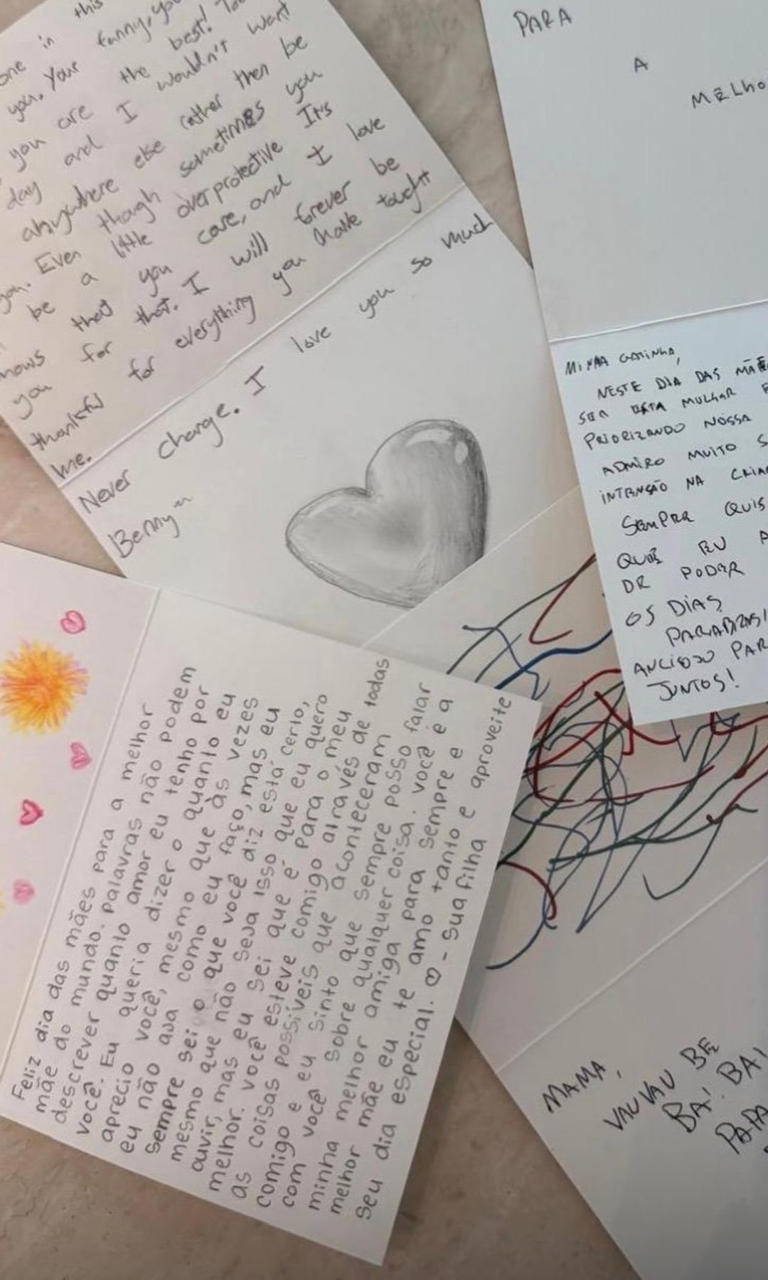 one in this
you. Your funny, you
you are the best! To
day and I wouldn't want
anywhere else rather then be
you. Even though sometimes you
be a little overprotective It's
that you care, and I love
you for that. I will forever be
thankful for everything you have tought
me.
Never change. I love you so much
Benny
PARA
A
MELHO
MINHA GATINHA,
NESTE DIA DAS MÃE
SER ESTA MULHER
PRIORIZANDO NOSSA
ADMIRO MUITO S
INTENSÃO NA CRIA
SEMPRE QUIS
QUE EU A
DE PODER
OS DIAS
PARABÉNS
ANCIOSO PAR
JUNTOS!
Feliz dia das mães para a melhor
mãe do mundo. Palavras não podem
descrever quanto amor eu tenho por
você. Eu queria dizer o quanto eu
aprecio você, mesmo que às vezes
eu não aja como eu faço, mas eu
sempre sei o que você diz está certo,
mesmo que não seja isso que eu quero
ouvir, mas eu sei que é Para o meu
melhor. Você esteve comigo através de todas
as coisas possíveis que aconteceram
comigo e eu sinto que sempre posso falar
com você sobre qualquer coisa. você é a
minha melhor amiga para sempre e
melhor mãe eu te amo tanto e aproveite
seu dia especial. ♡ - sua filha
MAMA,
VAUVAU BE
BA! BA!
PAPA